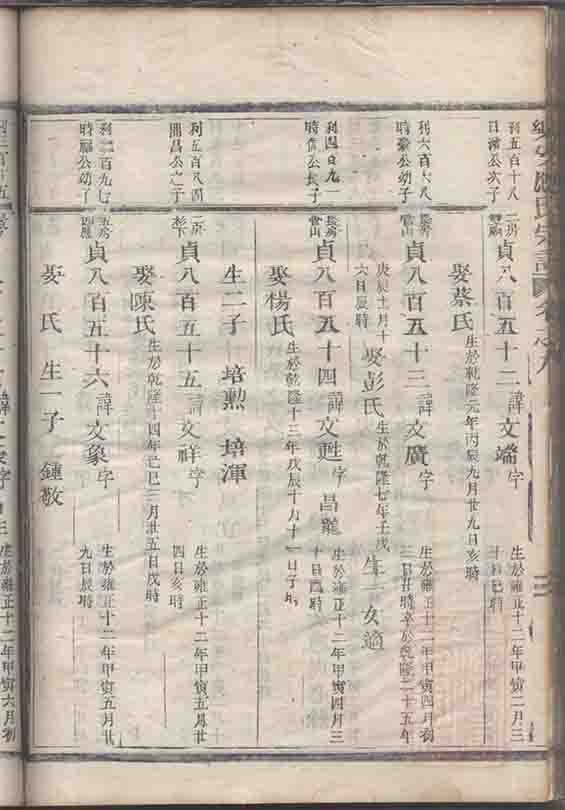 利五百十八
日
公次子
二房
貞八百五十二 諱文端字
生於雍正十二年甲寅二月三
十日巳時
娶蔡氏 生於乾隆元年丙辰九月廿九日亥時
利六百六八
時公幼子
長房
貞八百五十三 諱文廣字
生於雍正十二年甲寅四月初
三日 時卒於乾隆二十五年
庚辰十月十
六日辰時
娶彭氏 生於乾隆七年壬戌
生一女適
利四百九一
時公長子
長房
貞八百五十四 諱文甦字 昌
生於雍正十二年甲寅四月三
十日 時
娶楊氏 生於乾隆十三年戊辰十月十一日子時
生二子 培勲 培渾
利五百八四
開昌公之子
二房
杉下
貞八百五十五 諱文祥字
生於雍正十二年甲寅五月廿
四日亥時
娶陳氏 生於乾隆十四年己巳三月廿五日戌時
利二百九七
時公幼子
五房
貞八百五十六 諱文象字
生於雍正十二年甲寅五月廿
九日辰時
娶 氏 生一子 鍾敬
生於雍正十二年甲寅六月初